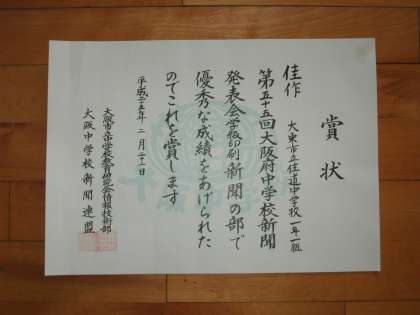 賞状
佳作
大東市立住道中学校一年一組
第五十五回大阪府中学校新聞
発表会学級印刷新聞の部で
優秀な成績をあげられた
のでこれを賞します
平成二十五年二月二十二日
大阪市立中学校教育研究会情報技術部
大阪中学校新聞連盟